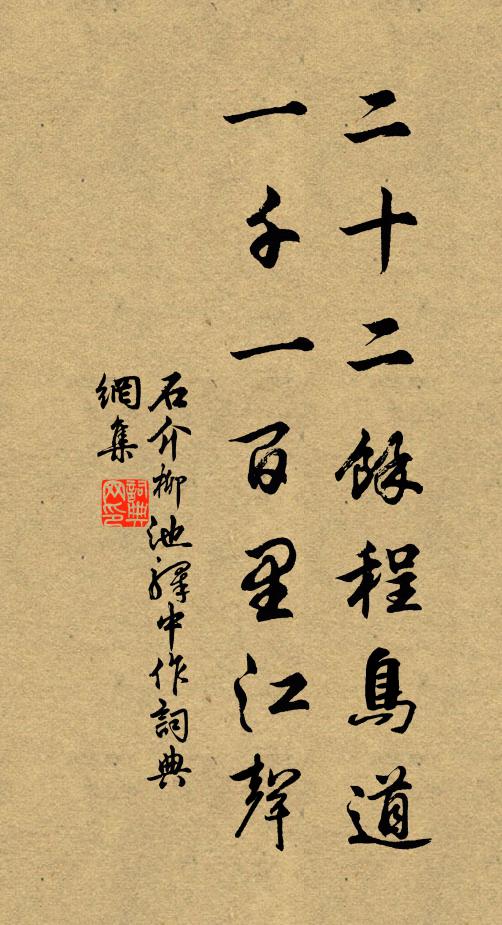 二十二餘程鳥道
一千一百里江聲
石介柳池驛中作詞典
網集
詞典網印